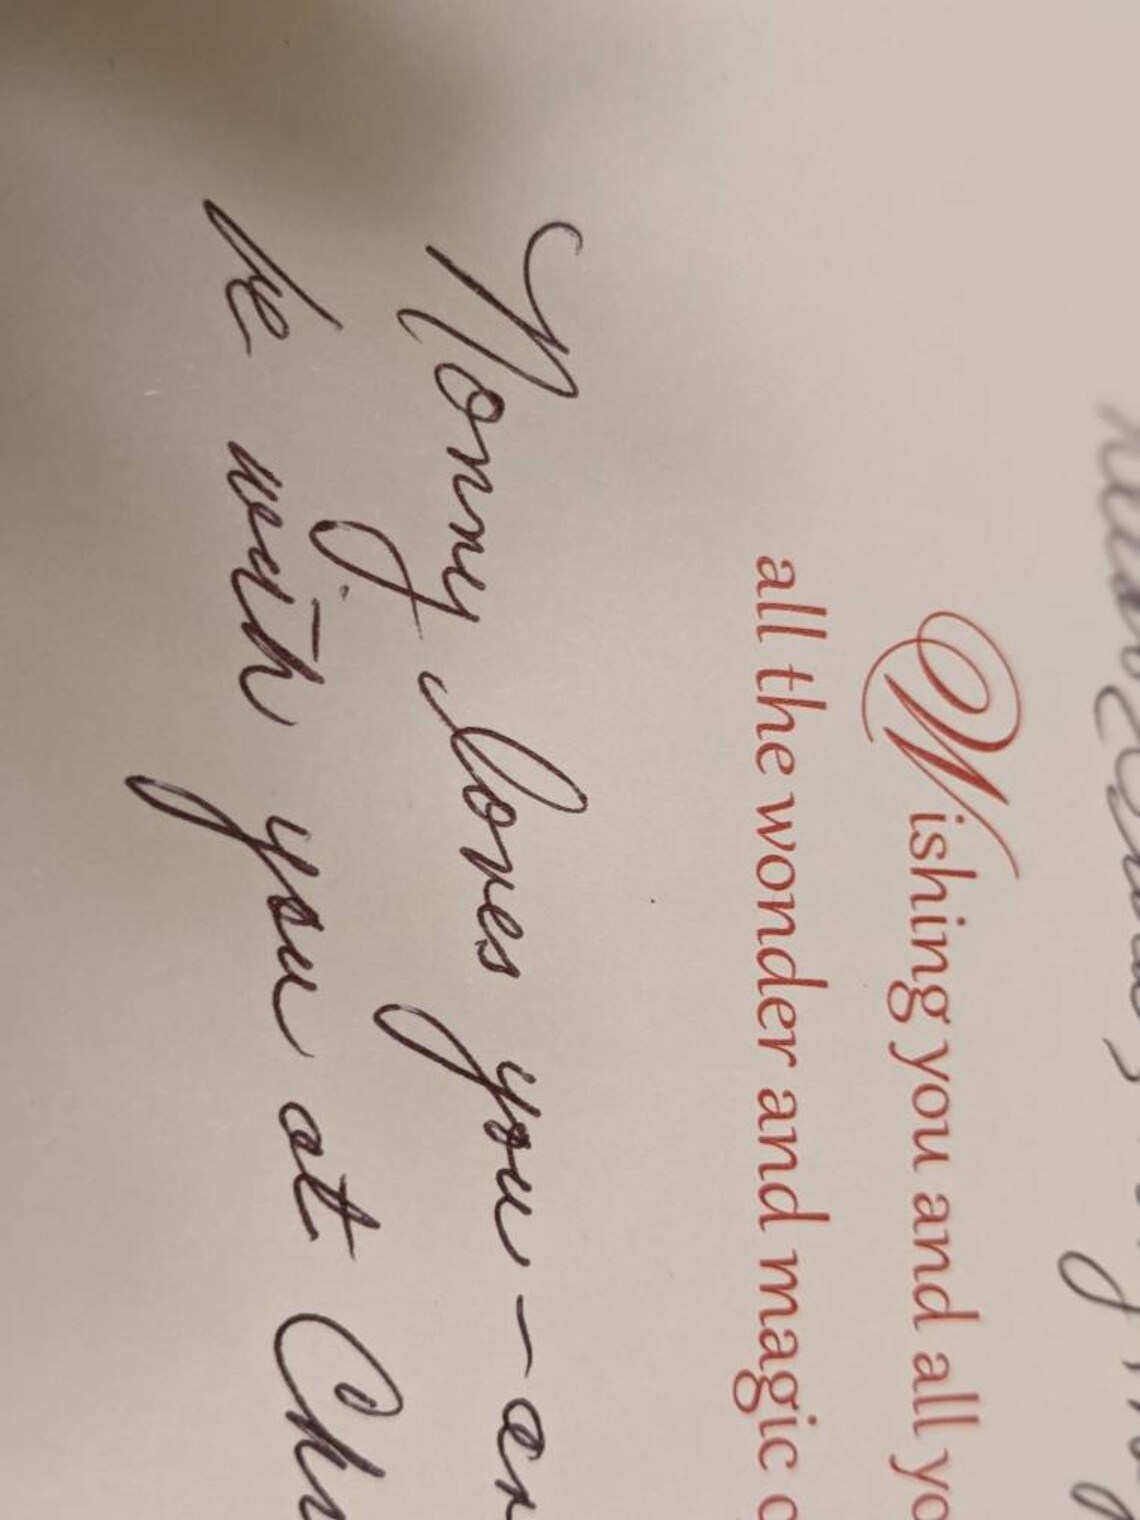 Wishing you and all yo
all the wonder and magic o
Nonny loves you - an
be with you at Chr